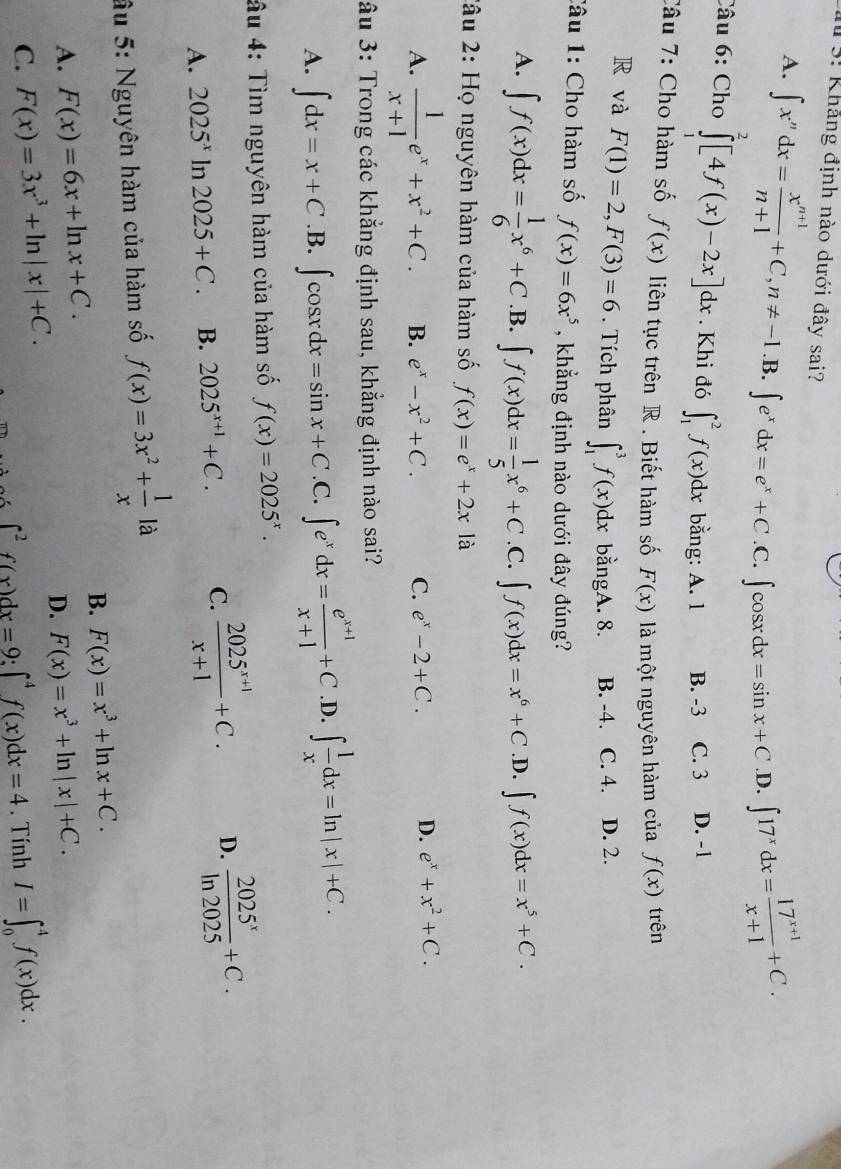 5: Khẳng định nào dưới đây sai?
A. ∫xⁿdx = x^{n+1}/(n+1) + C, n ≠ −1. B. ∫eˣdx = eˣ + C. C. ∫cosxdx = sin x + C. D. ∫17ˣdx = 17^{x+1}/(x+1) + C.
Câu 6: Cho ∫₁²[4f(x) − 2x]dx. Khi đó ∫₁² f(x)dx bằng: A. 1 B. -3 C. 3 D. -1
Câu 7: Cho hàm số f(x) liên tục trên ℝ. Biết hàm số F(x) là một nguyên hàm của f(x) trên
ℝ và F(1) = 2, F(3) = 6. Tích phân ∫₁³ f(x)dx bằngA. 8. B. -4. C. 4. D. 2.
Câu 1: Cho hàm số f(x) = 6x⁵, khẳng định nào dưới đây đúng?
A. ∫f(x)dx = 1/6 x⁶ + C. B. ∫f(x)dx = 1/5 x⁶ + C. C. ∫f(x)dx = x⁶ + C. D. ∫f(x)dx = x⁵ + C.
Câu 2: Họ nguyên hàm của hàm số f(x) = eˣ + 2x là
A. 1/(x+1) eˣ + x² + C. B. eˣ − x² + C. C. eˣ − 2 + C. D. eˣ + x² + C.
âu 3: Trong các khẳng định sau, khẳng định nào sai?
A. ∫dx = x + C. B. ∫cosxdx = sin x + C. C. ∫eˣdx = e^{x+1}/(x+1) + C. D. ∫1/x dx = ln|x| + C.
âu 4: Tìm nguyên hàm của hàm số f(x) = 2025ˣ.
A. 2025ˣ ln 2025 + C. B. 2025^{x+1} + C. C. 2025^{x+1}/(x+1) + C. D. 2025ˣ/ln 2025 + C.
âu 5: Nguyên hàm của hàm số f(x) = 3x² + 1/x là
A. F(x) = 6x + ln x + C. B. F(x) = x³ + ln x + C.
C. F(x) = 3x³ + ln|x| + C. D. F(x) = x³ + ln|x| + C.
∫² f(x)dx = 9; ∫⁴ f(x)dx = 4. Tính I = ∫₀⁴ f(x)dx.